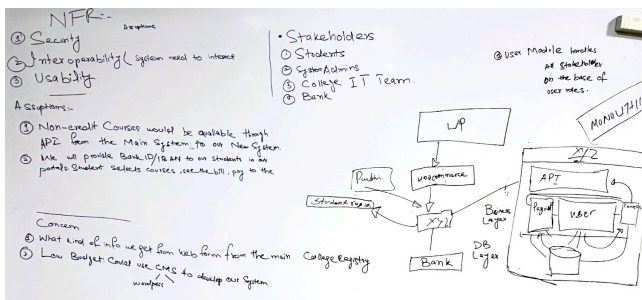 NFR:-
Assuptions
① Security
② Interoperability ( System need to interact
③ Usability
Assuptions:-
① Non-credit Courses would be avaliable though
API from the Main System to our New System.
② We will provide Bank ID/IBAN to our Students in our
portals Student selects courses, see the bill, pay to the
Concern
① What kind of info we get from web form from the main College Registry
② Low Budget Could use CMS to develop our System
wordpress
• Stakeholders
① Students
② System Admins
③ College IT Team.
④ Bank
③ User Module handles
All Stakeholder
on the base of
user roles.
MONOLITHIC
WP
woocommerce
Student
XYZ
Bank
Business
Layer
DB
Layer
XYZ
API
Payment
USER